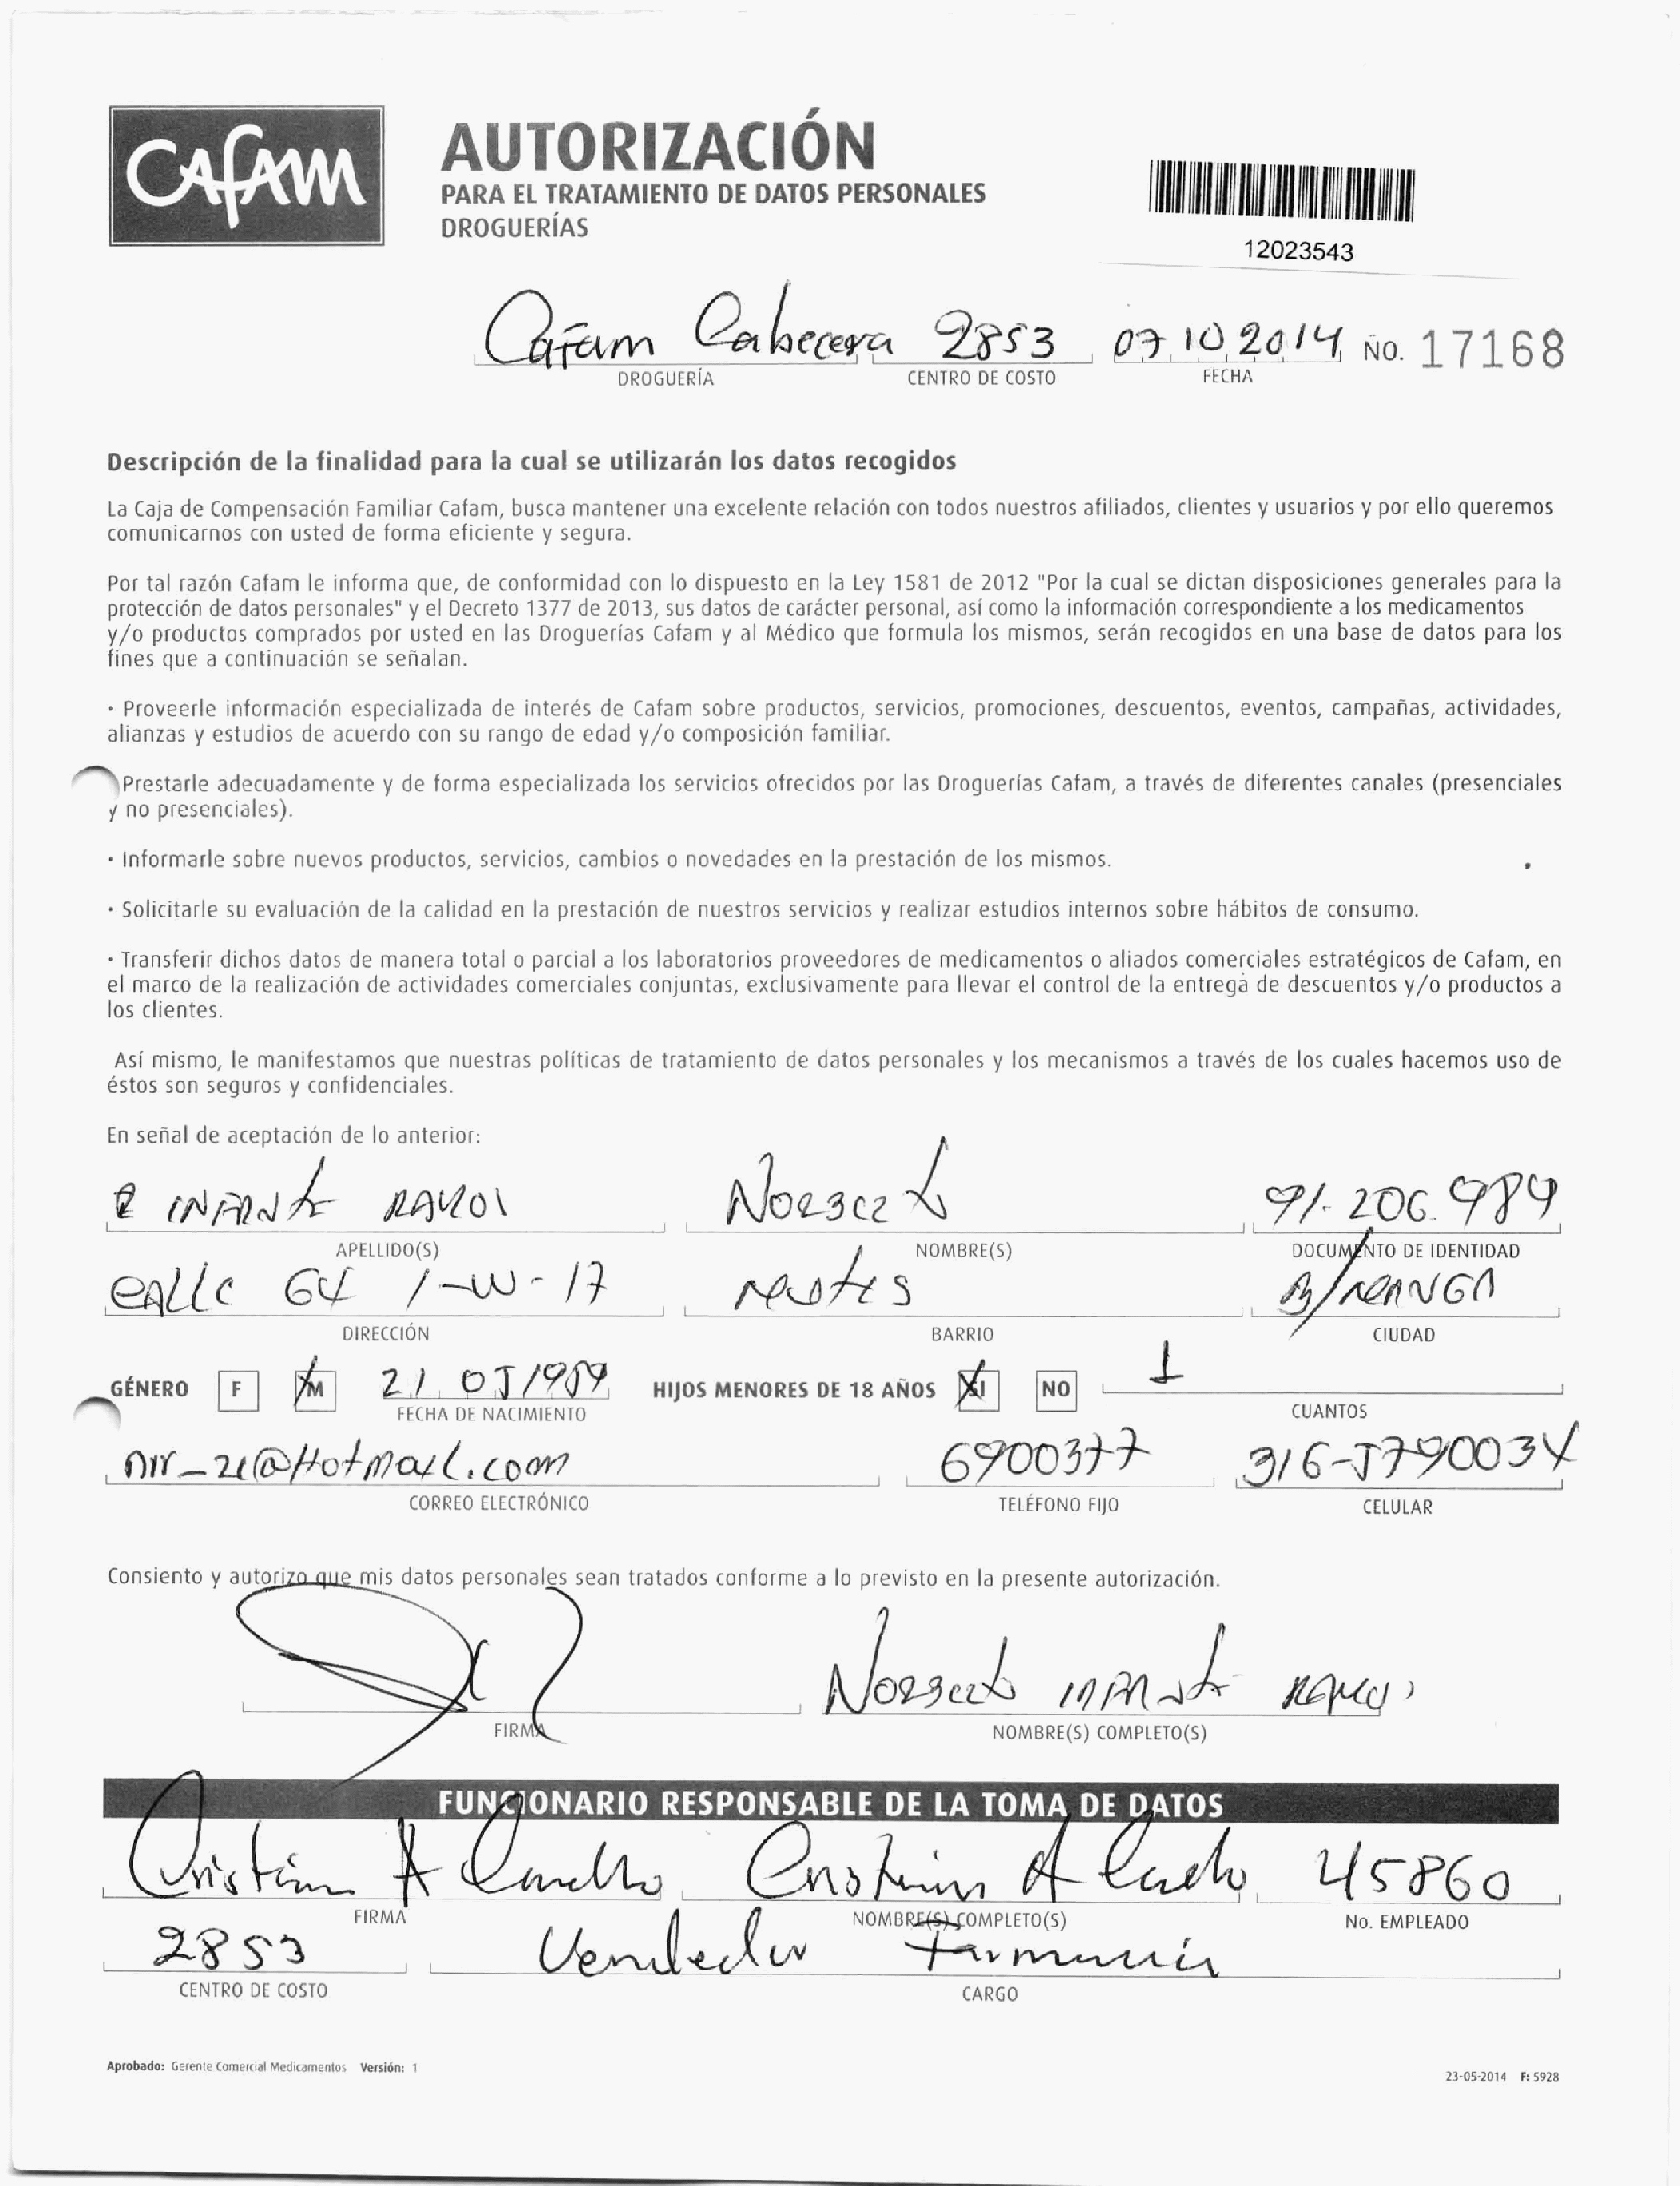 CAFAM
AUTORIZACIÓN
PARA EL TRATAMIENTO DE DATOS PERSONALES
DROGUERÍAS
12023543
Cafam Cabecera 2853 07 10 2014 NO. 17168
DROGUERÍA CENTRO DE COSTO FECHA
Descripción de la finalidad para la cual se utilizarán los datos recogidos
La Caja de Compensación Familiar Cafam, busca mantener una excelente relación con todos nuestros afiliados, clientes y usuarios y por ello queremos
comunicarnos con usted de forma eficiente y segura.
Por tal razón Cafam le informa que, de conformidad con lo dispuesto en la Ley 1581 de 2012 "Por la cual se dictan disposiciones generales para la
protección de datos personales" y el Decreto 1377 de 2013, sus datos de carácter personal, así como la información correspondiente a los medicamentos
y/o productos comprados por usted en las Droguerías Cafam y al Médico que formula los mismos, serán recogidos en una base de datos para los
fines que a continuación se señalan.
· Proveerle información especializada de interés de Cafam sobre productos, servicios, promociones, descuentos, eventos, campañas, actividades,
alianzas y estudios de acuerdo con su rango de edad y/o composición familiar.
Prestarle adecuadamente y de forma especializada los servicios ofrecidos por las Droguerías Cafam, a través de diferentes canales (presenciales
y no presenciales).
· Informarle sobre nuevos productos, servicios, cambios o novedades en la prestación de los mismos.
· Solicitarle su evaluación de la calidad en la prestación de nuestros servicios y realizar estudios internos sobre hábitos de consumo.
· Transferir dichos datos de manera total o parcial a los laboratorios proveedores de medicamentos o aliados comerciales estratégicos de Cafam, en
el marco de la realización de actividades comerciales conjuntas, exclusivamente para llevar el control de la entrega de descuentos y/o productos a
los clientes.
Así mismo, le manifestamos que nuestras políticas de tratamiento de datos personales y los mecanismos a través de los cuales hacemos uso de
éstos son seguros y confidenciales.
En señal de aceptación de lo anterior:
INFANTE Norberto 91.206.984
APELLIDO(S) NOMBRE(S) DOCUMENTO DE IDENTIDAD
CALLE 64 1-W-17 B/MANGA
DIRECCIÓN BARRIO CIUDAD
GÉNERO F M 21 05 1959 HIJOS MENORES DE 18 AÑOS SI NO 1
FECHA DE NACIMIENTO CUANTOS
nir_21@Hotmail.com 6900377 316-5790034
CORREO ELECTRÓNICO TELÉFONO FIJO CELULAR
Consiento y autorizo que mis datos personales sean tratados conforme a lo previsto en la presente autorización.
Norberto infante
FIRMA NOMBRE(S) COMPLETO(S)
FUNCIONARIO RESPONSABLE DE LA TOMA DE DATOS
Cristian A Cristian A 45860
FIRMA NOMBRE(S) COMPLETO(S) No. EMPLEADO
2853 Vendedor Farmacia
CENTRO DE COSTO CARGO
Aprobado: Gerente Comercial Medicamentos Versión: 1
23-05-2014 F: 5928